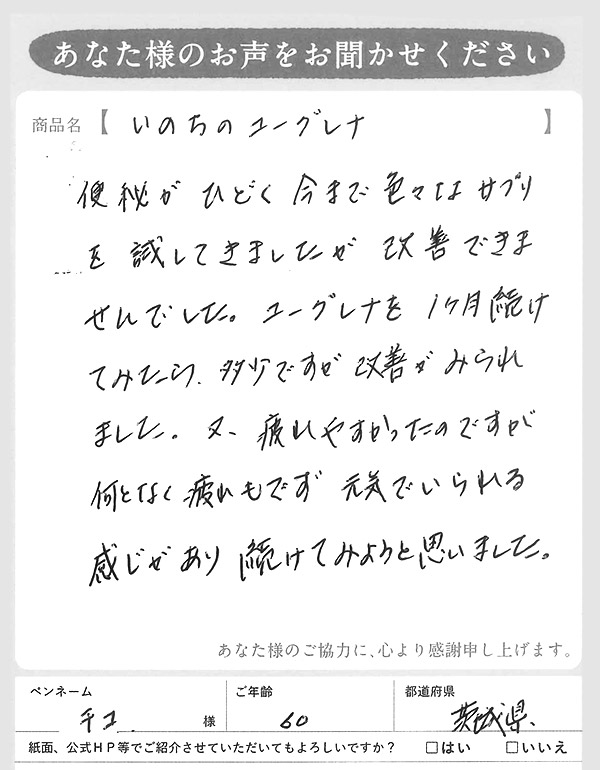 あなた様のお声をお聞かせください
商品名【 いのちのユーグレナ 】
便秘が ひどく 今まで 色々なサプリ
を 試してきましたが 改善できま
せんでした。ユーグレナを 1ヶ月続け
てみたら、多少ですが 改善がみられ
ました。又、疲れやすかったのですが
何となく疲れもでず 元気でいられる
感じがあり 続けてみようと思いました。
あなた様のご協力に、心より感謝申し上げます。
ペンネーム ご年齢 都道府県
チコ 様 60 茨城県
紙面、公式HP等でご紹介させていただいてもよろしいですか? □はい □いいえ